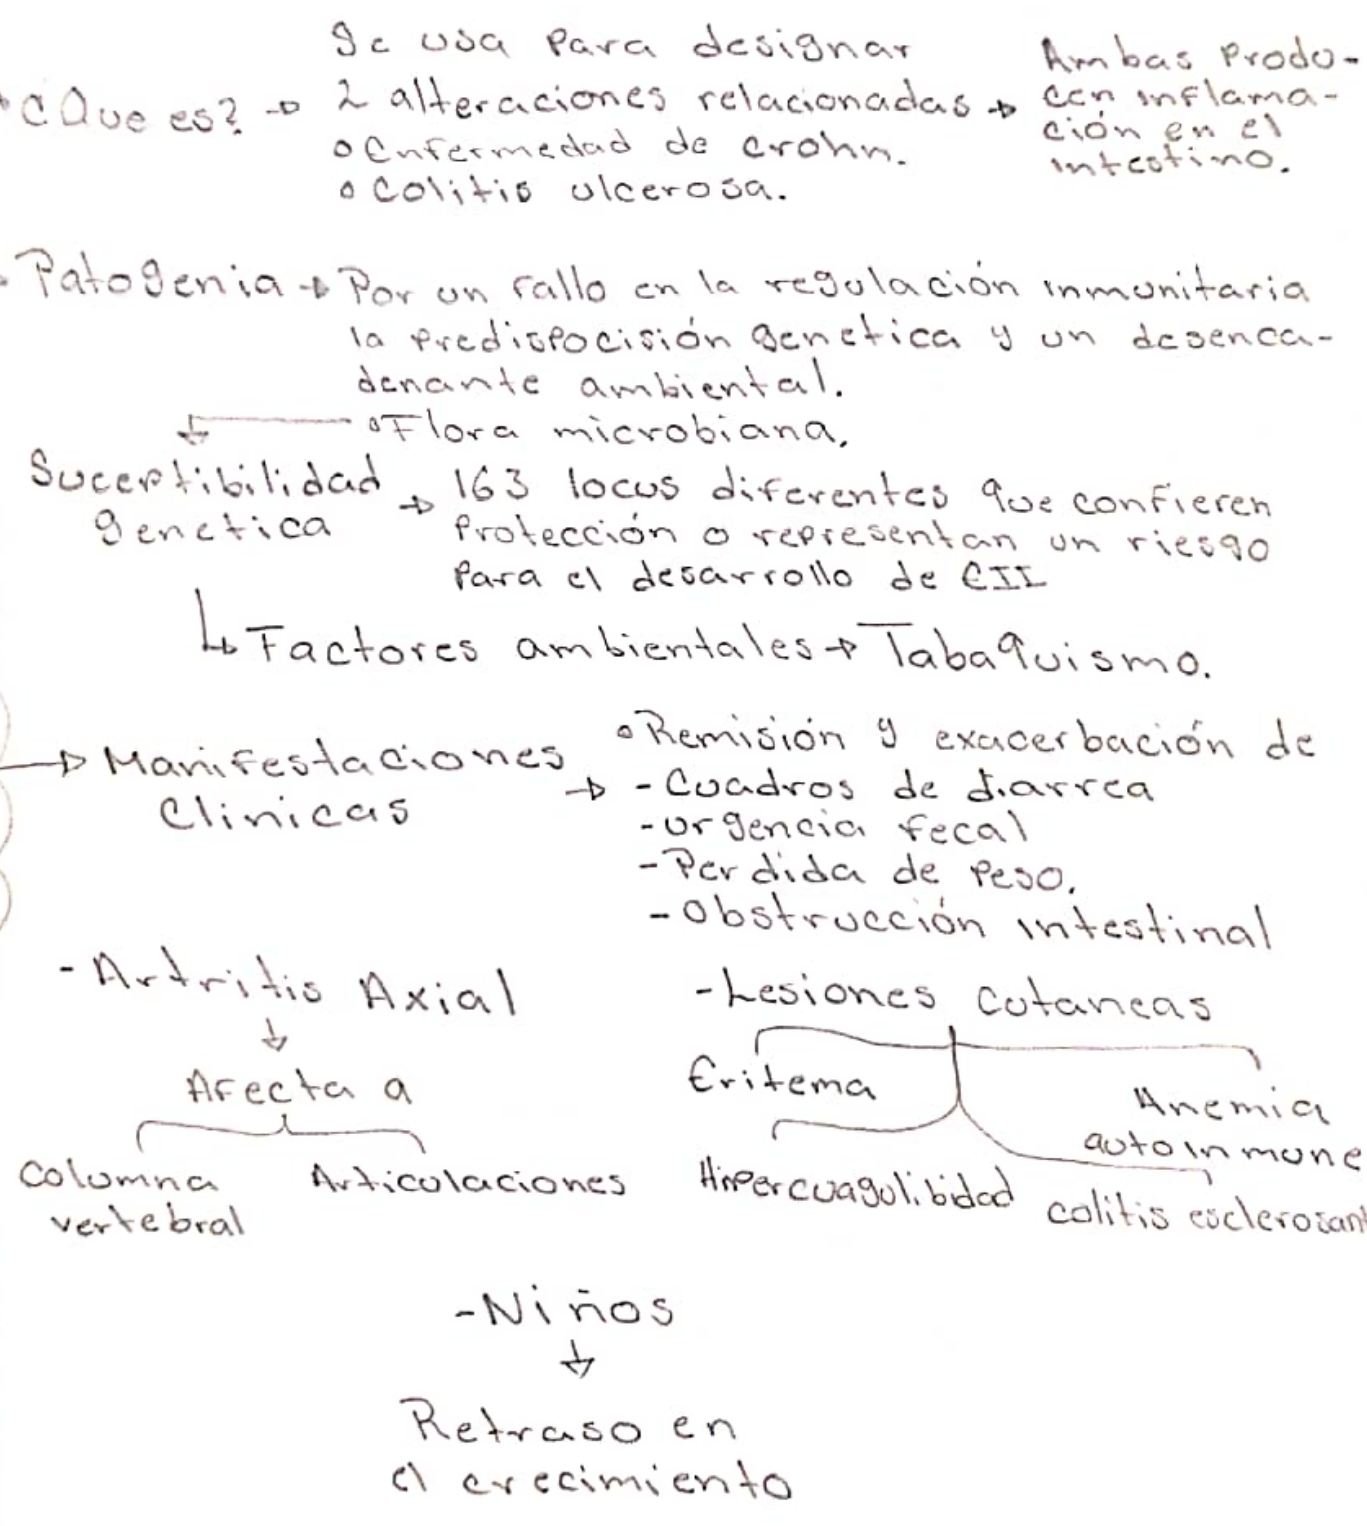 ¿Que es? → Se usa para designar
2 alteraciones relacionadas →
o Enfermedad de crohn.
o Colitis ulcerosa.
Ambas produ-
cen inflama-
ción en el
intestino.
Patogenia → Por un fallo en la regulación inmunitaria
la predispocisión genetica y un desenca-
denante ambiental.
o Flora microbiana.
Suceptibilidad
genetica → 163 locus diferentes que confieren
protección o representan un riesgo
para el desarrollo de EII
Factores ambientales → Tabaquismo.
→ Manifestaciones
Clinicas →
o Remisión y exacerbación de
- Cuadros de diarrea
- urgencia fecal
- Perdida de peso.
- Obstrucción intestinal
- Artritis Axial
Afecta a
Columna
vertebral
Articulaciones
- Lesiones cutaneas
Eritema
Anemia
autoinmune
Hipercuagulibidad
colitis esclerosant
- Niños
Retraso en
el crecimiento